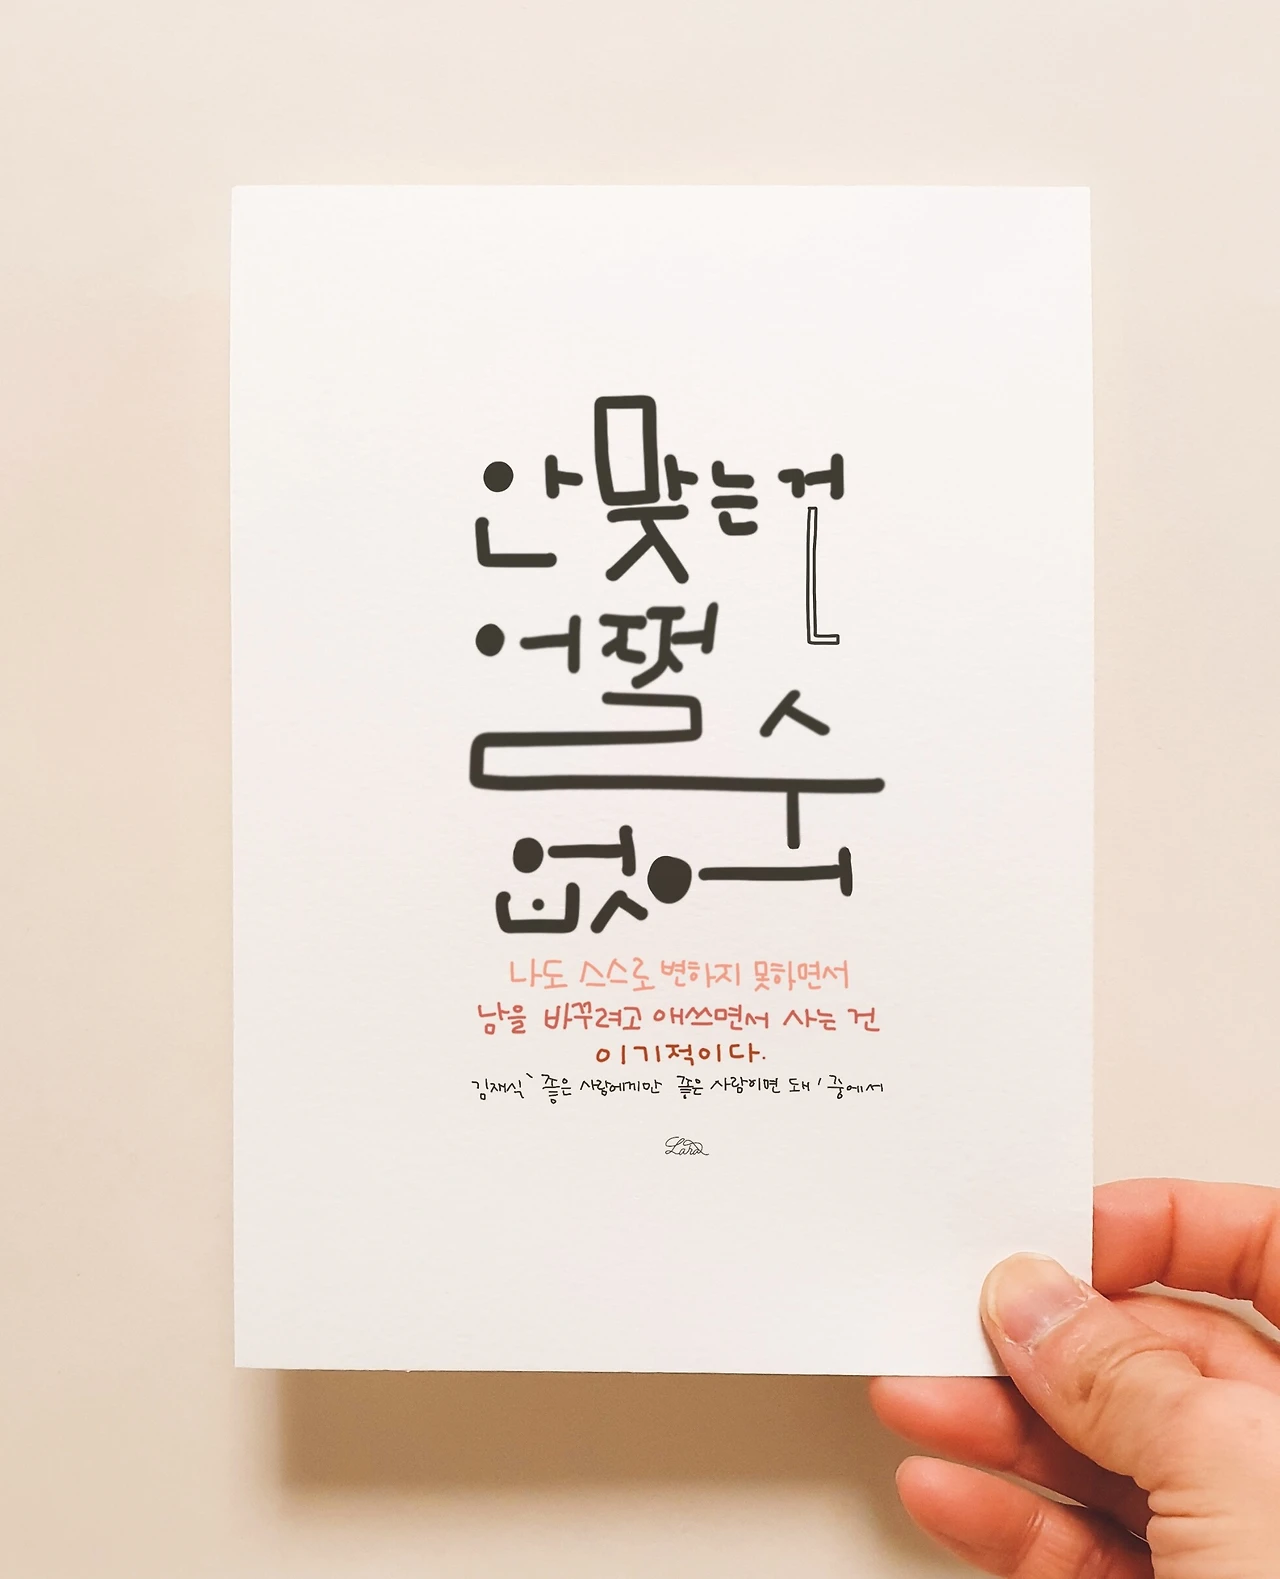 안 맞는 건
어쩔 수
없어
나도 스스로 변하지 못하면서
남을 바꾸려고 애쓰면서 사는 건
이기적이다.
김재식 '좋은 사람에게만 좋은 사람이면 돼' 중에서
Lara